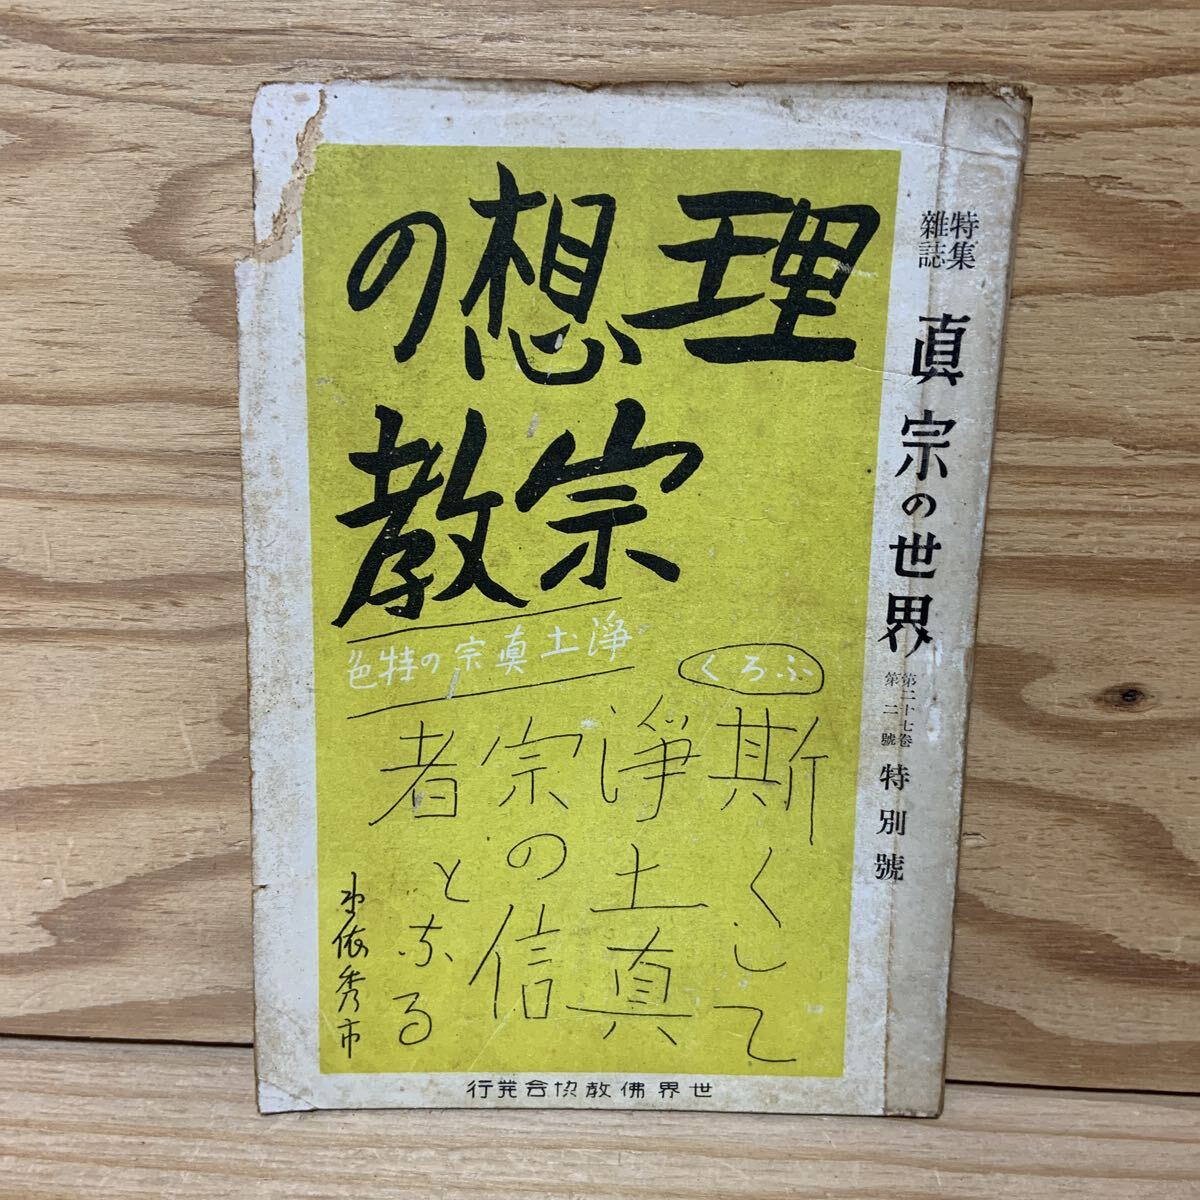 特集
雜誌
眞宗の世界
第二十七卷
第二號
特別號
理想の
宗教
淨土眞宗の特色
ふろく
斯くして
淨土真
宗の信
者となる
野依秀市
世界佛教協会発行